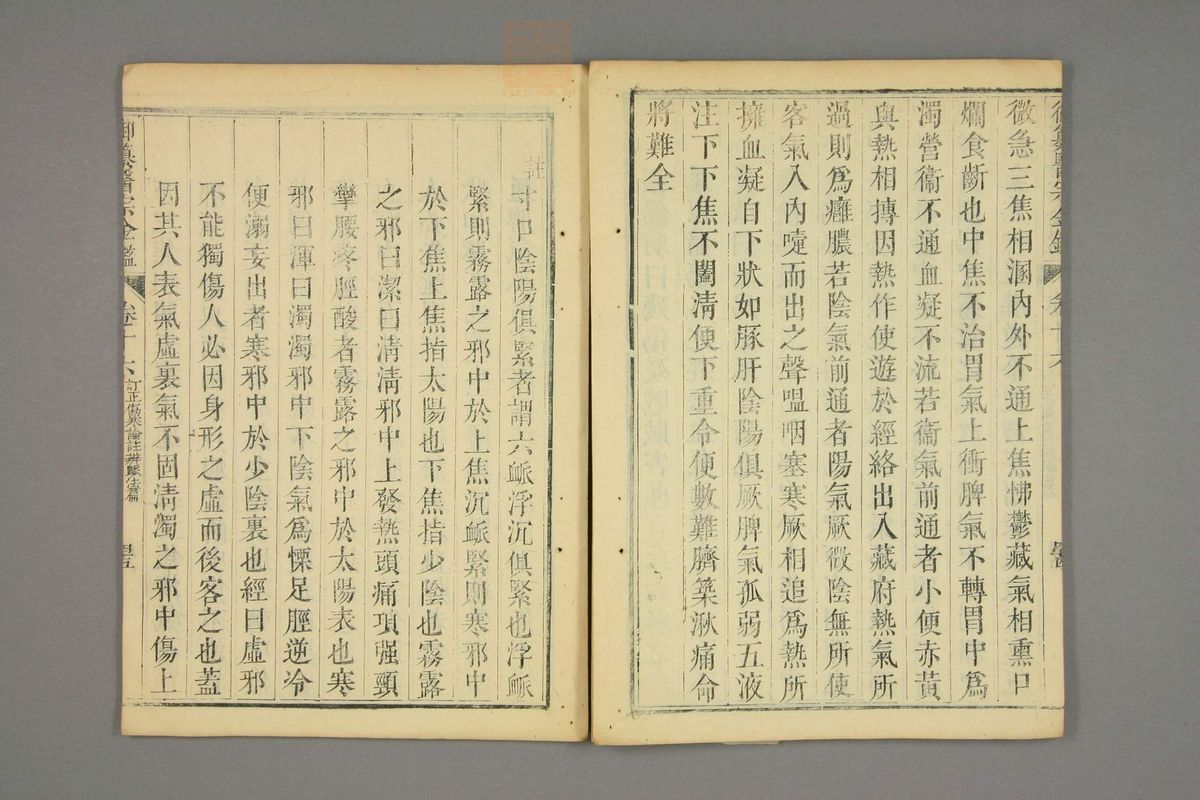 微急三焦相溷內外不通上焦怫鬱藏氣相熏口
爛食齗也中焦不治胃氣上衝脾氣不轉胃中爲
濁營衞不通血凝不流若衞氣前通者小便赤黃
與熱相搏因熱作使遊於經絡出入藏府熱氣所
過則爲癰膿若陰氣前通者陽氣厥微陰無所使
客氣入內嚏而出之聲嗢咽塞寒厥相追爲熱所
擁血凝自下狀如豚肝陰陽俱厥脾氣孤弱五液
注下下焦不闔淸便下重令便數難臍築湫痛命
將難全
註寸口陰陽俱緊者謂六脈浮沉俱緊也浮脈
緊則霧露之邪中於上焦沉脈緊則寒邪中
於下焦上焦指太陽也下焦指少陰也霧露
之邪曰潔曰淸淸邪中上發熱頭痛項强頸
攣腰疼脛酸者霧露之邪中於太陽表也寒
邪曰渾曰濁濁邪中下陰氣爲慄足脛逆冷
便溺妄出者寒邪中於少陰裏也經曰虛邪
不能獨傷人必因身形之虛而後客之也蓋
因其人表氣虛裏氣不固淸濁之邪中傷上
御纂醫宗金鑑 卷十六 訂正傷寒論註辨脈法篇